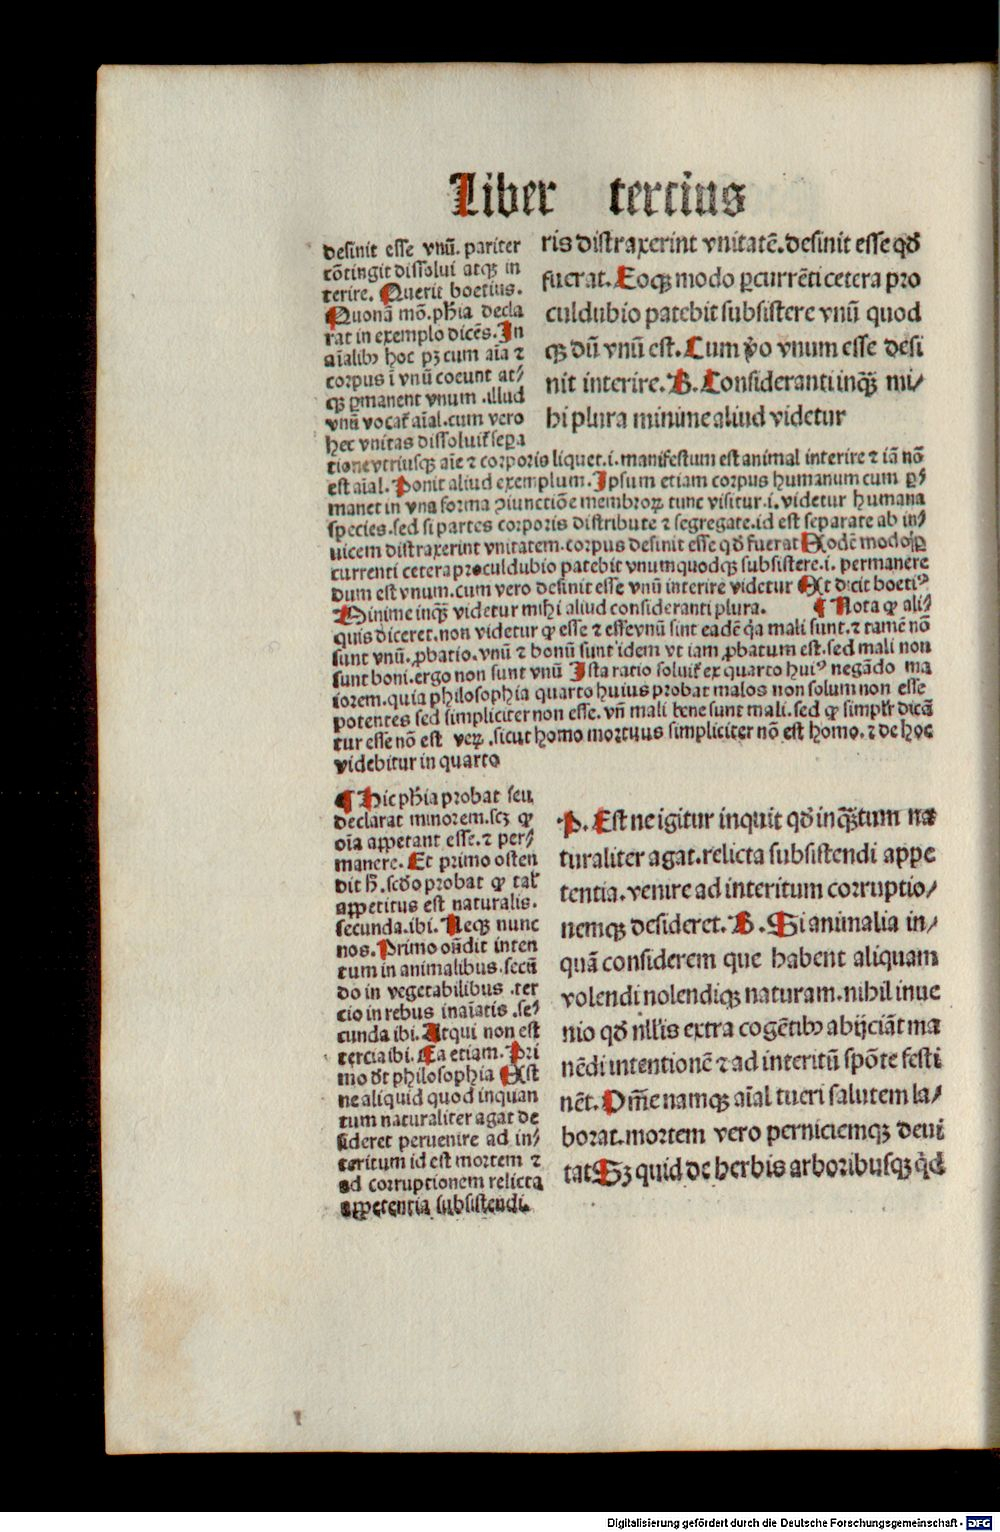 Liber tercius
desinit esse vnū. pariter
cōtingit dissolui atqꝫ in
terire. Querit boetius.
Quonā mō. ph̄ia decla
rat in exemplo dicēs. In
aīalibꝫ hoc pꝫ cum aīa ⁊
corpus ī vnū coeunt at⸗
qꝫ ꝑmanent vnum .illud
vnū vocat̄ aīal. cum vero
hec vnitas dissoluit̄ seꝑa
tione vtriusqꝫ aīe ⁊ corporis liquet .i. manifestum est animal interire ⁊ iā nō
est aīal. Ponit aliud exemplum. Ipsum etiam corpus humanum cum ꝑ⸗
manet in vna forma ꝯiunctiōe membroꝝ tunc visitur .i. videtur humana
species. sed si partes corporis distribute ⁊ segregate. id est separate ab in⸗
uicem distraxerint vnitatem. corpus desinit esse qd̄ fuerat Eodē modo ꝑ
currenti cetera proculdubio patebit vnumquodqꝫ subsistere .i. permanere
dum est vnum. cum vero desinit esse vnū interire videtur Et dicit boetiꝰ
Minime inqꝫ videtur mihi aliud consideranti plura. ¶ Nota ꝙ ali⸗
quis diceret. non videtur ꝙ esse ⁊ esse vnū sint eadē q̄a mali sunt. ⁊ tamē nō
sunt vnū. ꝓbatio. vnū ⁊ bonū sunt idem vt iam ꝓbatum est. sed mali non
sunt boni. ergo non sunt vnū Ista ratio soluit̄ ex quarto huiꝰ negādo ma
iorem. quia philosophia quarto huius probat malos non solum non esse
potentes sed simpliciter non esse. vn̄ mali bene sunt mali. sed ꝙ simplr̄ dicā
tur esse nō est veꝝ. sicut homo mortuus simpliciter nō est homo. ⁊ de hoc
videbitur in quarto
ris distraxerint vnitatē. desinit esse qd̄
fuerat. Eoqꝫ modo ꝑcurrēti cetera pro
culdubio patebit subsistere vnū quod
qꝫ dū vnū est. Cum ꝟo vnum esse desi
nit interire. B. Consideranti inqꝫ̄ mi⸗
hi plura minime aliud videtur
¶ Hic ph̄ia probat seu
declarat minorem. scꝫ ꝙ
oīa appetant esse. ⁊ per⸗
manere. Et primo osten
dit h̄. scd̄o probat ꝙ tal̄
appetitus est naturalis.
secunda. ibi. Neqꝫ nunc
nos. Primo ond̄it inten
tum in animalibus. secū
do in vegetabilibus .ter
cio in rebus inaīatis .se⸗
cunda ibi. Atqui non est
tercia ibi. Ea etiam. Pri
mo dt̄ philosophia Est
ne aliquid quod inquan
tum naturaliter agat de
sideret peruenire ad in⸗
teritum id est mortem ⁊
ad corruptionem relicta
appetentia subsistendi.
P. Est ne igitur inquit qd̄ inqꝫ̄tum na
turaliter agat. relicta subsistendi appe
tentia. venire ad interitum corruptio⸗
nemqꝫ desideret. B. Si animalia in⸗
quā considerem que habent aliquam
volendi nolendiqꝫ naturam. nihil inue
nio qd̄ nll̄is extra cogētibꝫ abijciāt ma
nēdi intentionē ⁊ ad interitū spōte festi
nēt. Om̄e namqꝫ aīal tueri salutem la⸗
borat. mortem vero perniciemqꝫ deui
tat Sꝫ quid de herbis arboribusqꝫ qd̄
Digitalisierung gefördert durch die Deutsche Forschungsgemeinschaft - DFG